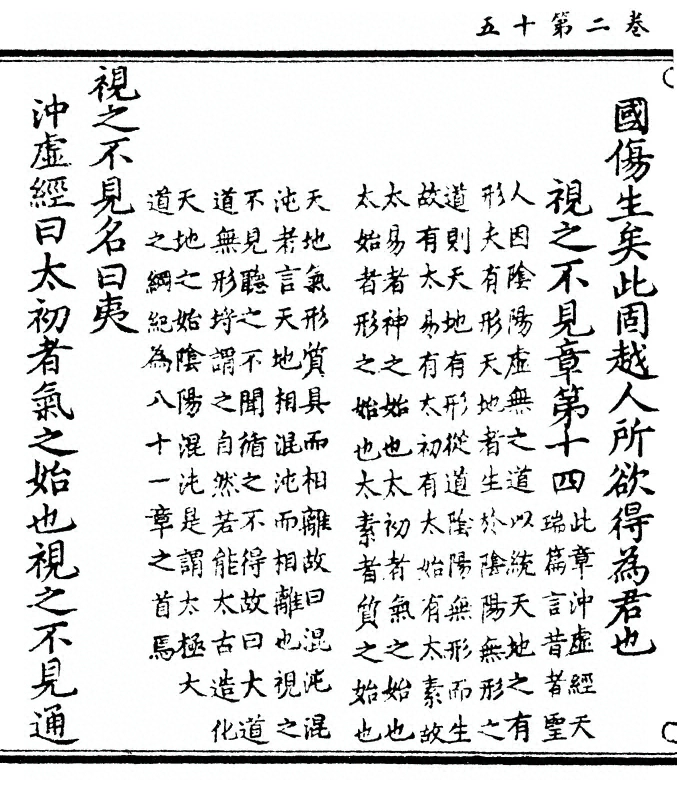 卷二第十五
國傷生矣此固越人所欲得為君也
視之不見章第十四
此章沖虛經天
瑞篇言昔者聖
人因陰陽虛無之道以統天地之有
形夫有形天地者生於陰陽無形之
道則天地有形從道陰陽無形而生
故有太易有太初有太始有太素故
太易者神之始也太初者氣之始也
太始者形之始也太素者質之始也
天地氣形質具而相離故曰混沌混
沌若言天地相混沌而相離也視之
不見聽之不聞循之不得故曰大道
道無形埒謂之自然若能太古造化
天地之始陰陽混沌是謂太極大
道之綱紀為八十一章之首焉
視之不見名曰夷
沖虛經曰太初者氣之始也視之不見通